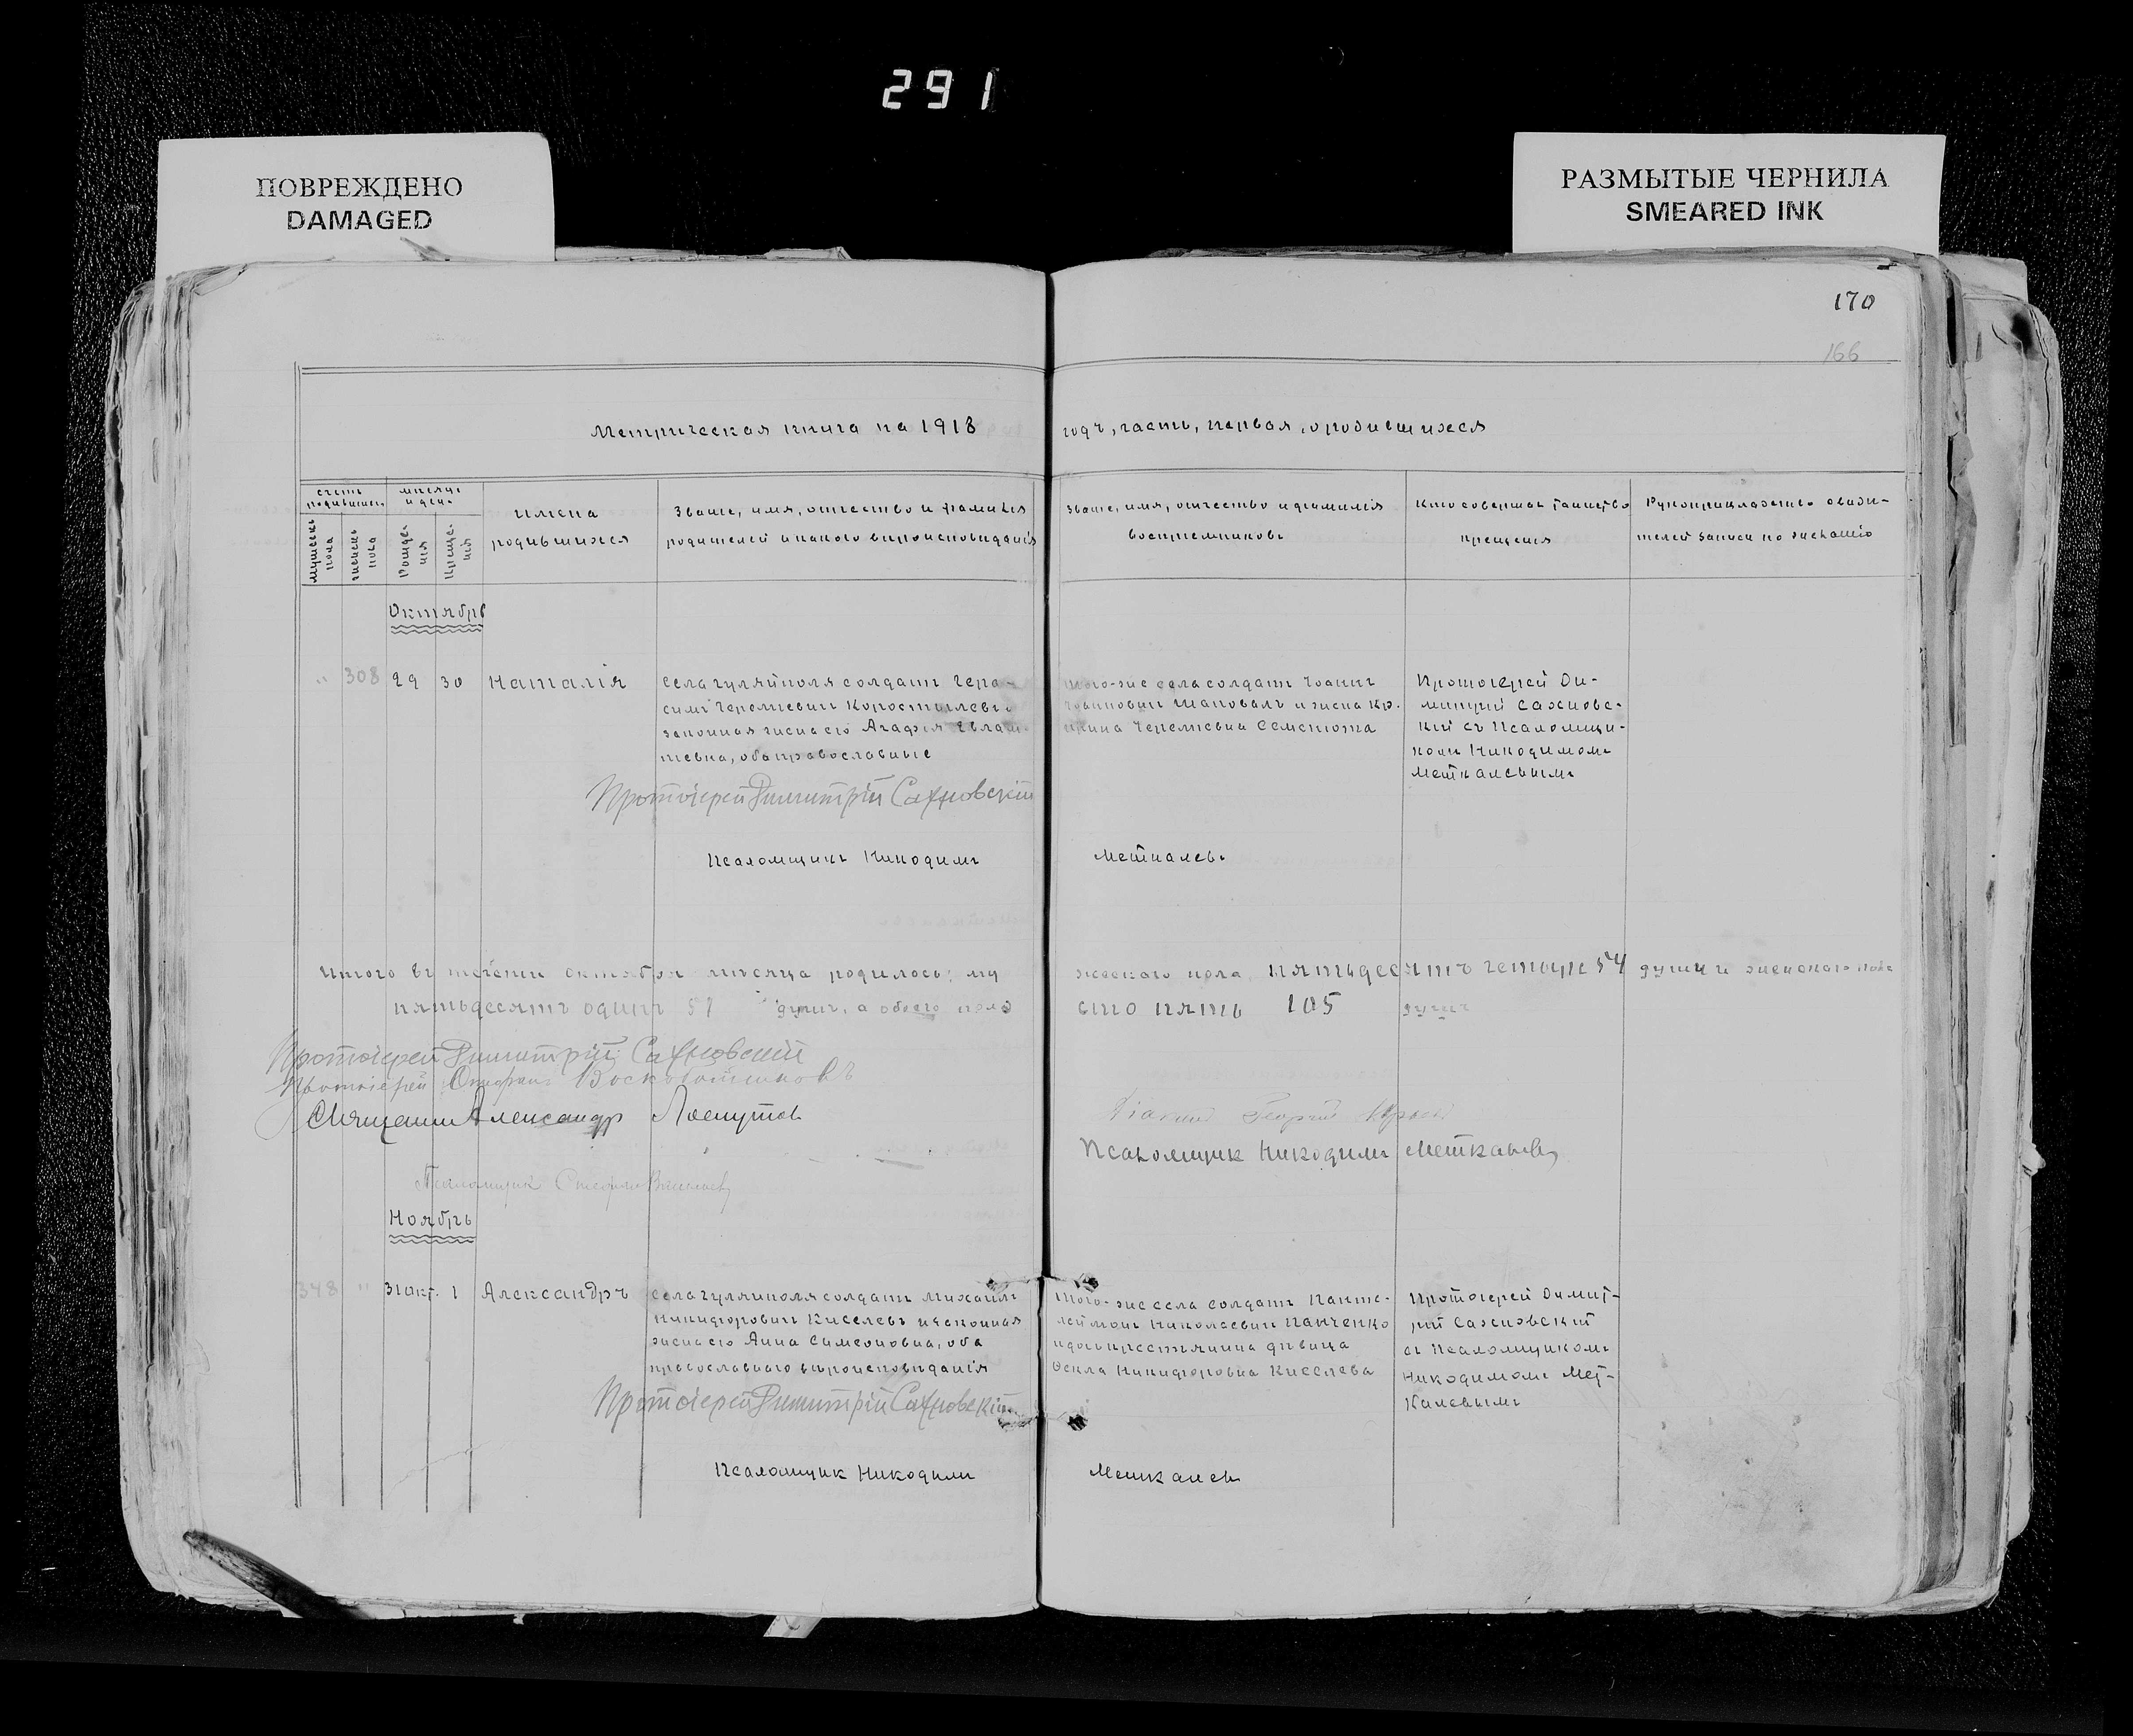 291
ПОВРЕЖДЕНО
DAMAGED
РАЗМЫТЫЕ ЧЕРНИЛА
SMEARED INK
170
166
Метрическая книга на 1918 годъ, часть, первая, о родившихся
счетъ родившихся
мѣсяцъ и день
мужеск. пола
женск. пола
Рожде-
нія
Креще-
нія
имена
родившихся
Званіе, имя, отчество и фамилія
родителей и какого вѣроисповѣданія
Званіе, имя, отчество и фамилія
воспріемниковъ
Кто совершалъ таинство
крещенія
Рукоприкладство свидѣ-
телей записи по желанію
Октябрь
" 308 29 30 Наталія
Села Гуляйполя солдатъ Гера-
симъ Коростылевъ и
законная жена его Агафія
обa православные
того-же села солдатъ Іоаннъ
Іоанновичъ Шаповалъ и жена
Семенюта
Протоіерей Ди-
митрій Сахновс-
кій съ Псаломщи-
комъ Никодимомъ
Меткалевымъ
Протоіерей Димитрій Сахновскій
Псаломщикъ Никодимъ Меткалевъ
Итого въ теченіи октября мѣсяца родилось: му жескаго пола, пятьдесятъ четыре 54 души и женскаго пола
пятьдесятъ одинъ 51 душъ, а обоего пола сто пять 105 душъ
Протоіерей Димитрій Сахновскій
Протоіерей Стефанъ Воскобойниковъ
Священникъ Александр Лоскутов
Діаконъ Георгій
Псаломщик Никодимъ Меткалевъ
Псаломщик Стефанъ
Ноябрь
348 " 31 окт. 1 Александръ
Села Гуляйполя солдатъ Михаилъ
Никифоровичъ Киселевъ и законная
жена его Анна Симеоновна, оба
православнаго вѣроисповѣданія
того-же села солдатъ Панте-
леймонъ Николаевичъ Панченко
и дочь крестьянина дѣвица
Ѳекла Никифоровна Киселева
Протоіерей Димит-
рій Сахновскій
съ Псаломщикомъ
Никодимомъ Мет-
калевымъ
Протоіерей Димитрій Сахновскій
Псаломщик Никодимъ Меткалевъ